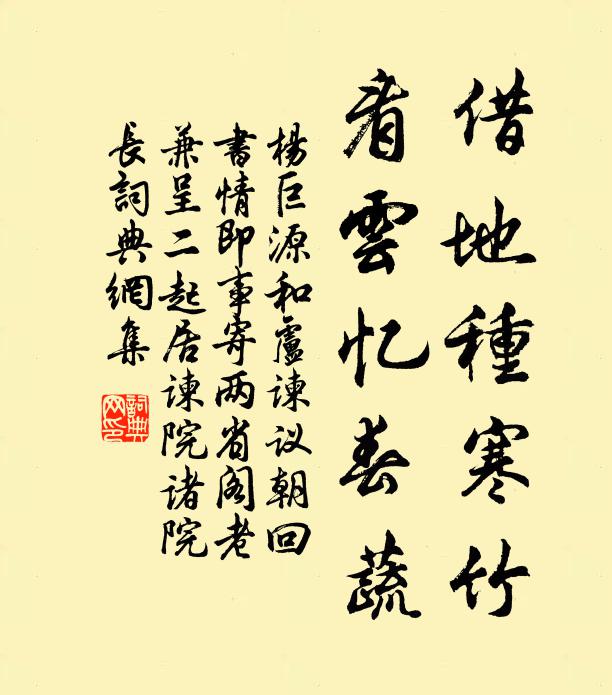 借地種寒竹
看雲忆春蔬
楊巨源和盧諫议朝回
書情即事寄两省阁老
兼呈二起居谏院诸院
長詞典網集
詞典
网印